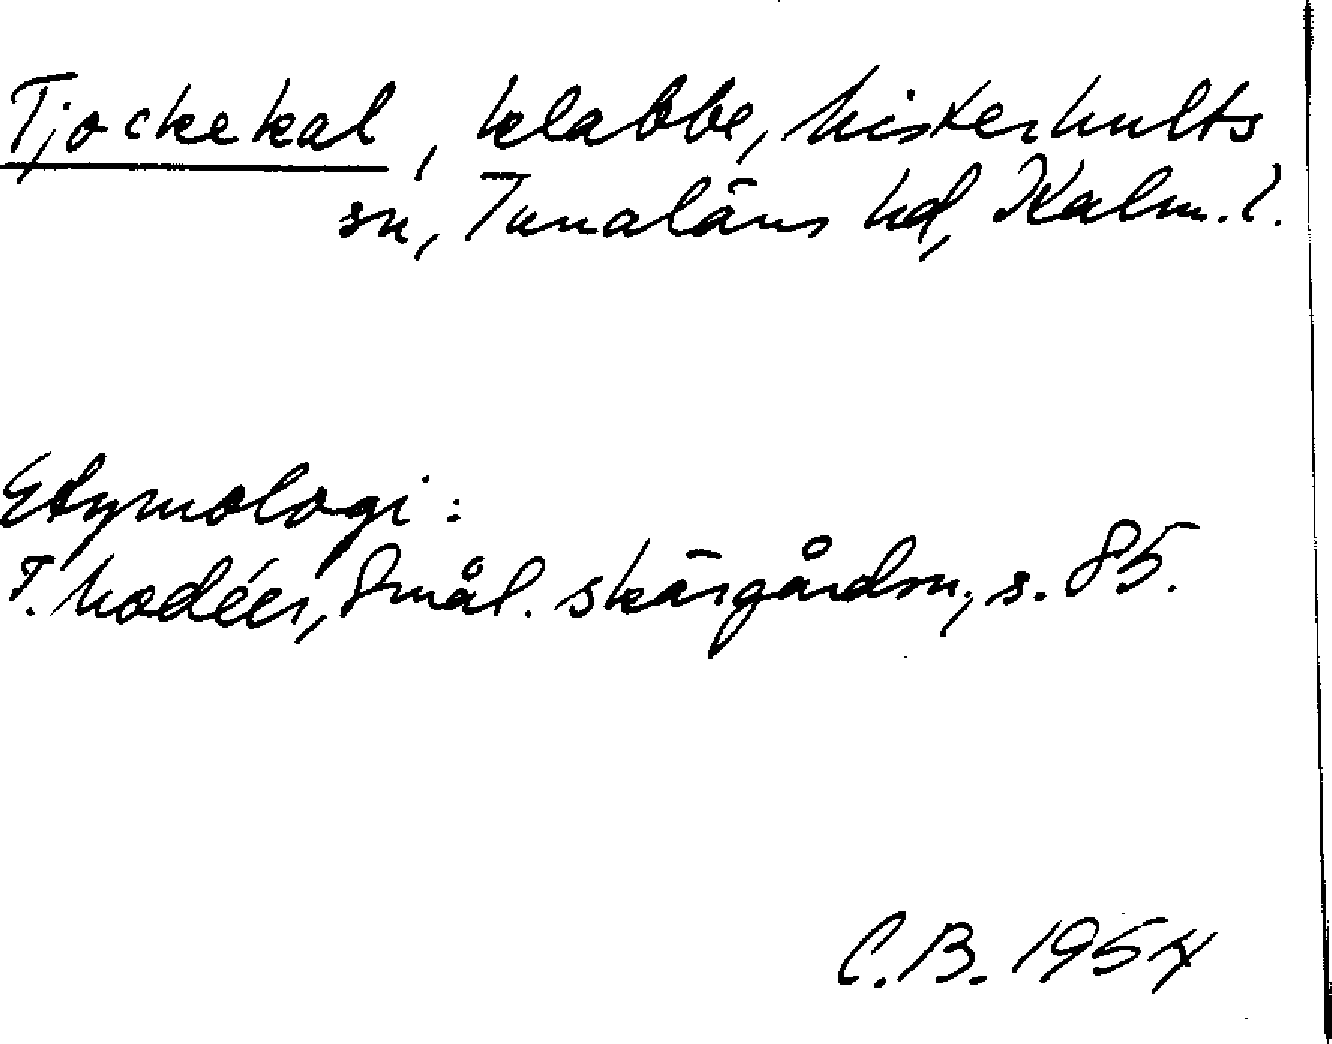 Tjockekal, klabbe, Misterhults
sn, Tunaläns hd, Kalm. l.
Etymologi:
T. Hodéer, Smål. skärgårdsn, s. 85.
C.B. 1954